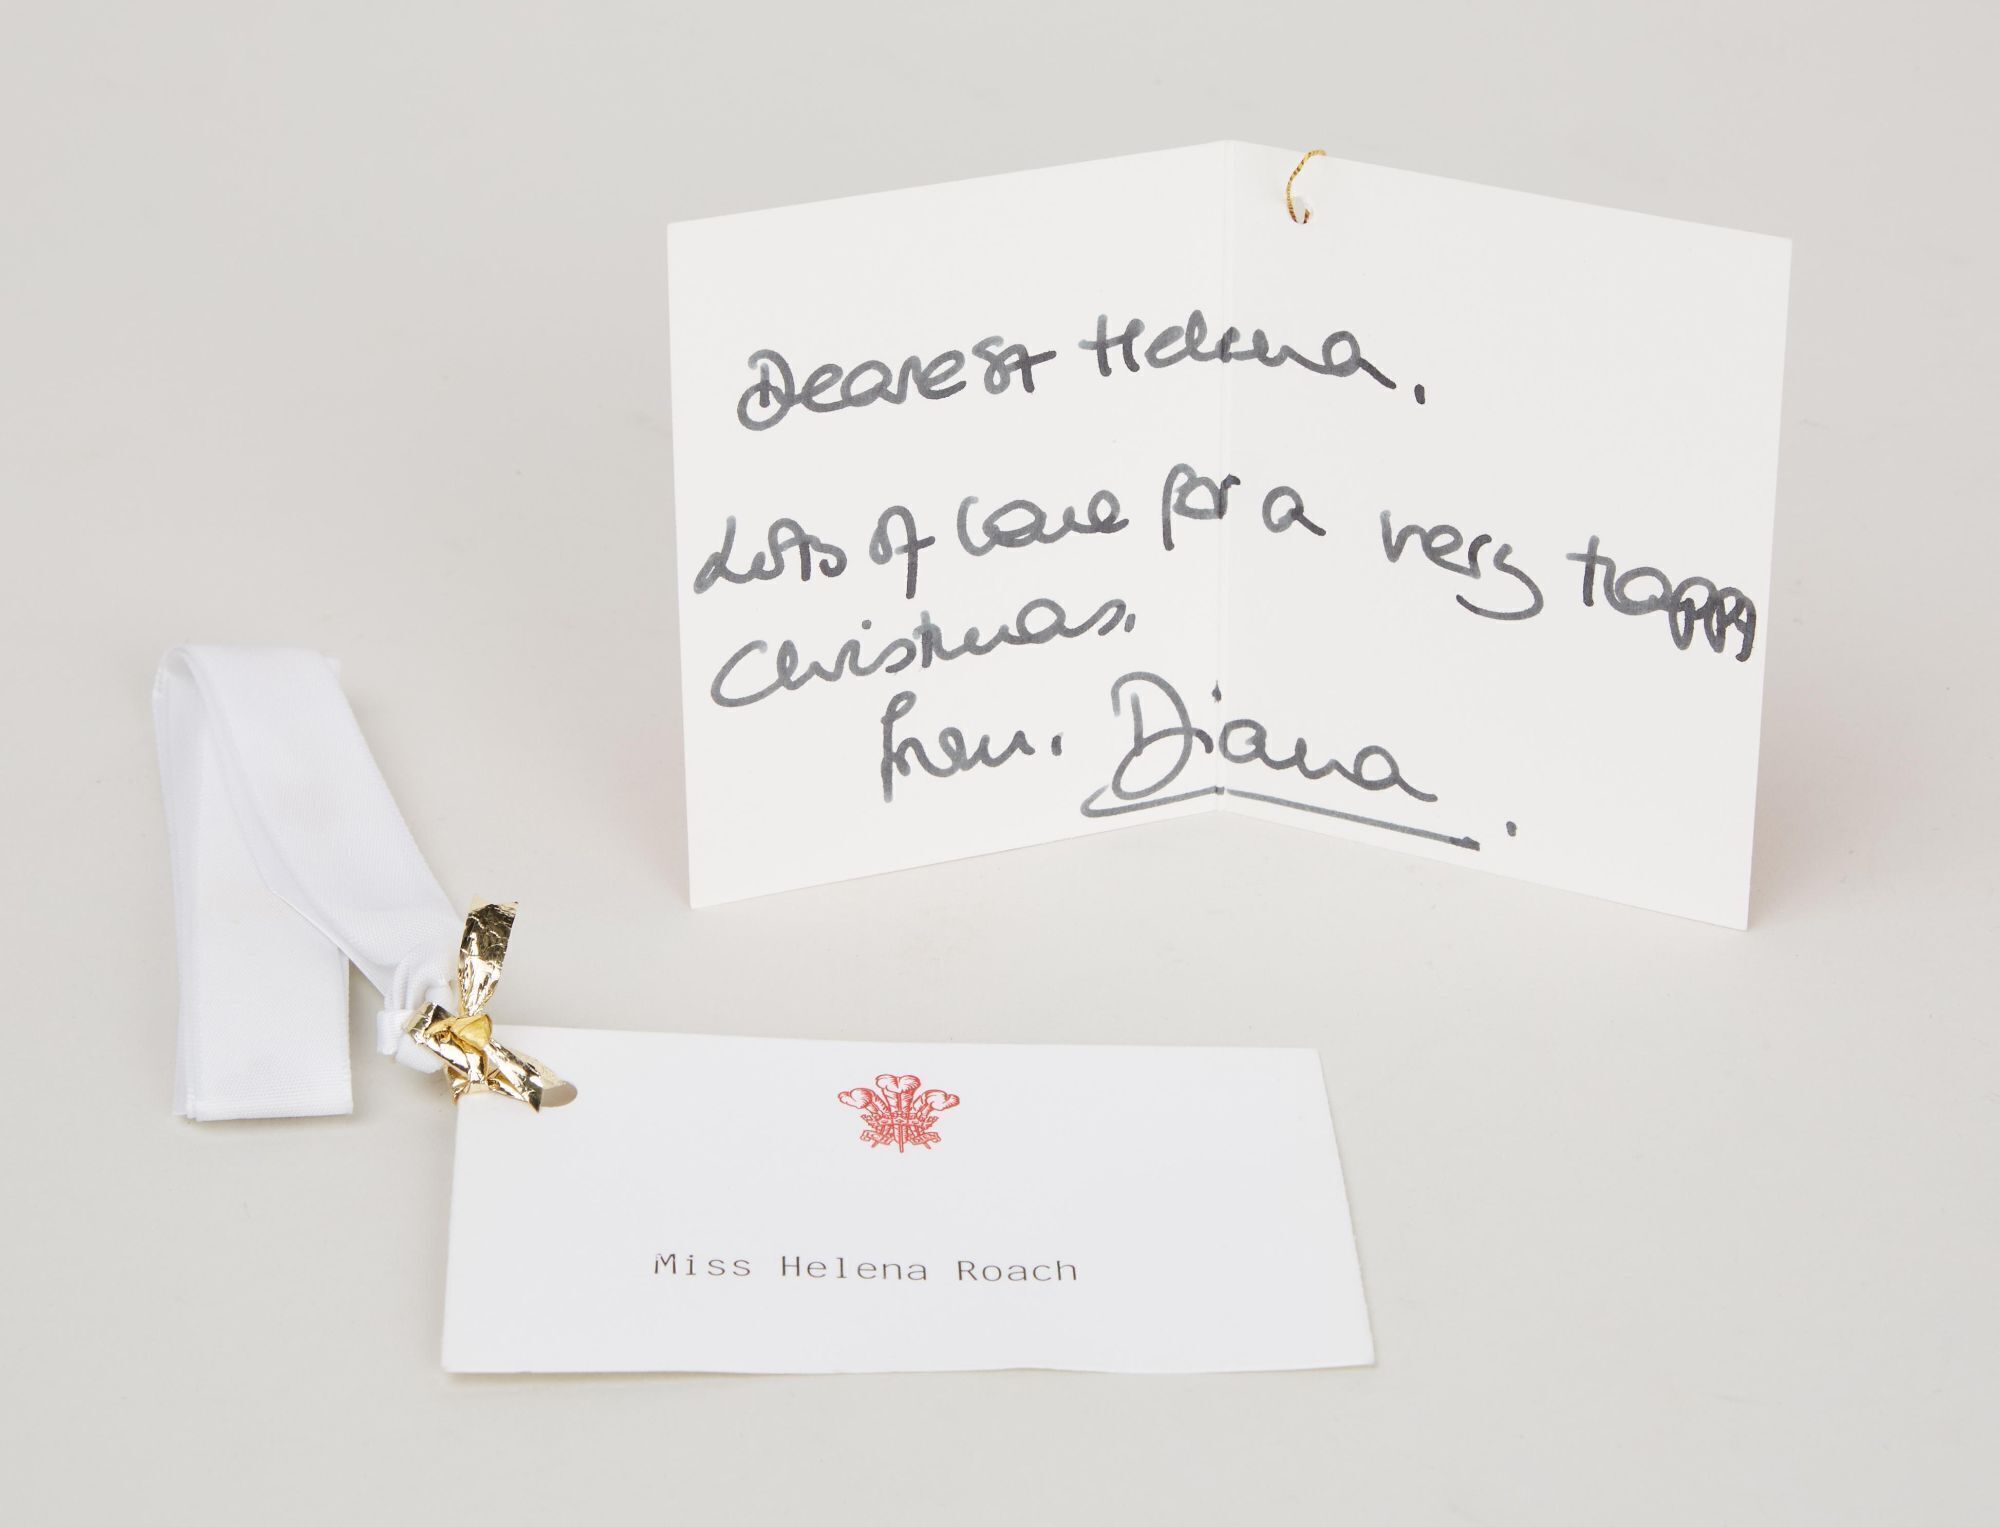 Dearest Helena.
Lots of love for a very Happy
Christmas.
from. Diana.
Miss Helena Roach